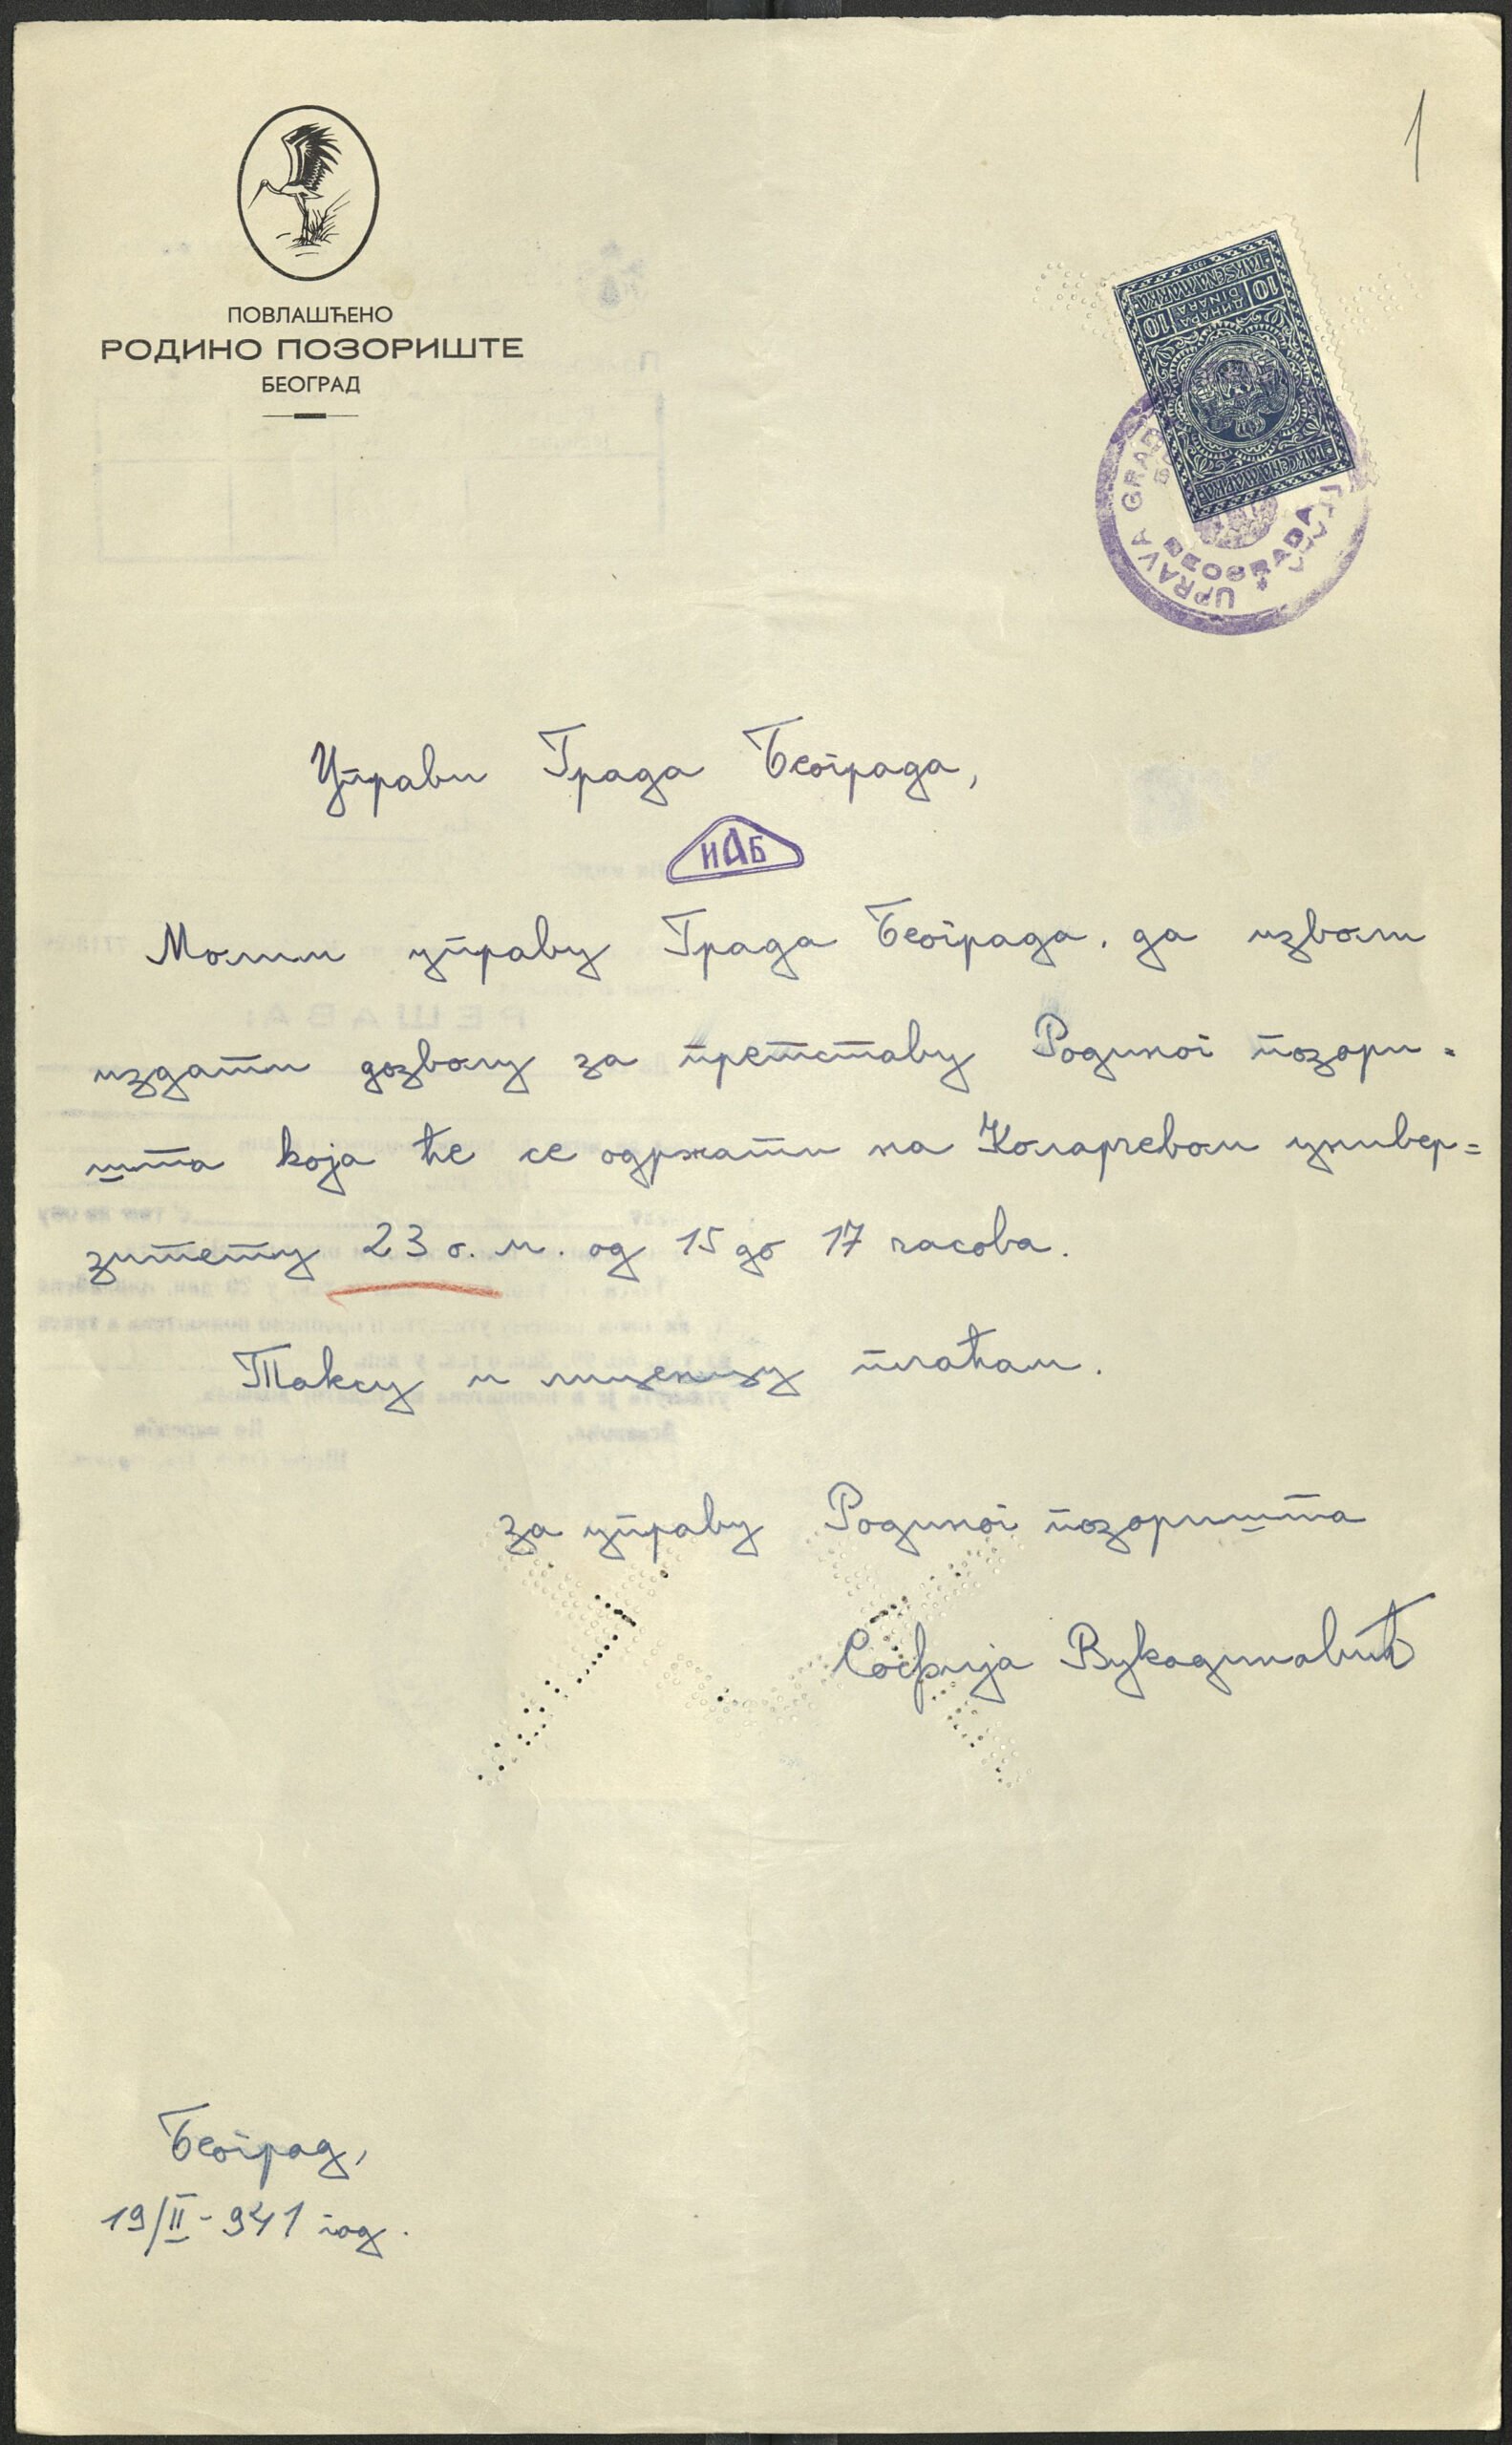 1
ПОВЛАШЋЕНО
РОДИНО ПОЗОРИШТЕ
БЕОГРАД
TAKSENA MARKA
10 ДИНАРА 10
DINARA
ТАКСЕНА МАРКА
UPRAVA GRADA
BEOGRADA
Управи Града Београда,
ИАБ
Молим управу Града Београда, да изволи
издати дозволу за претставу Родиног позори=
шта која ће се одржати на Коларчевом универ=
зитету 23 о. м. од 15 до 17 часова.
Таксу и лиценцу плаћам.
за управу Родиног позоришта
Софија Вукадиновић
Београд,
19/II - 941 год.